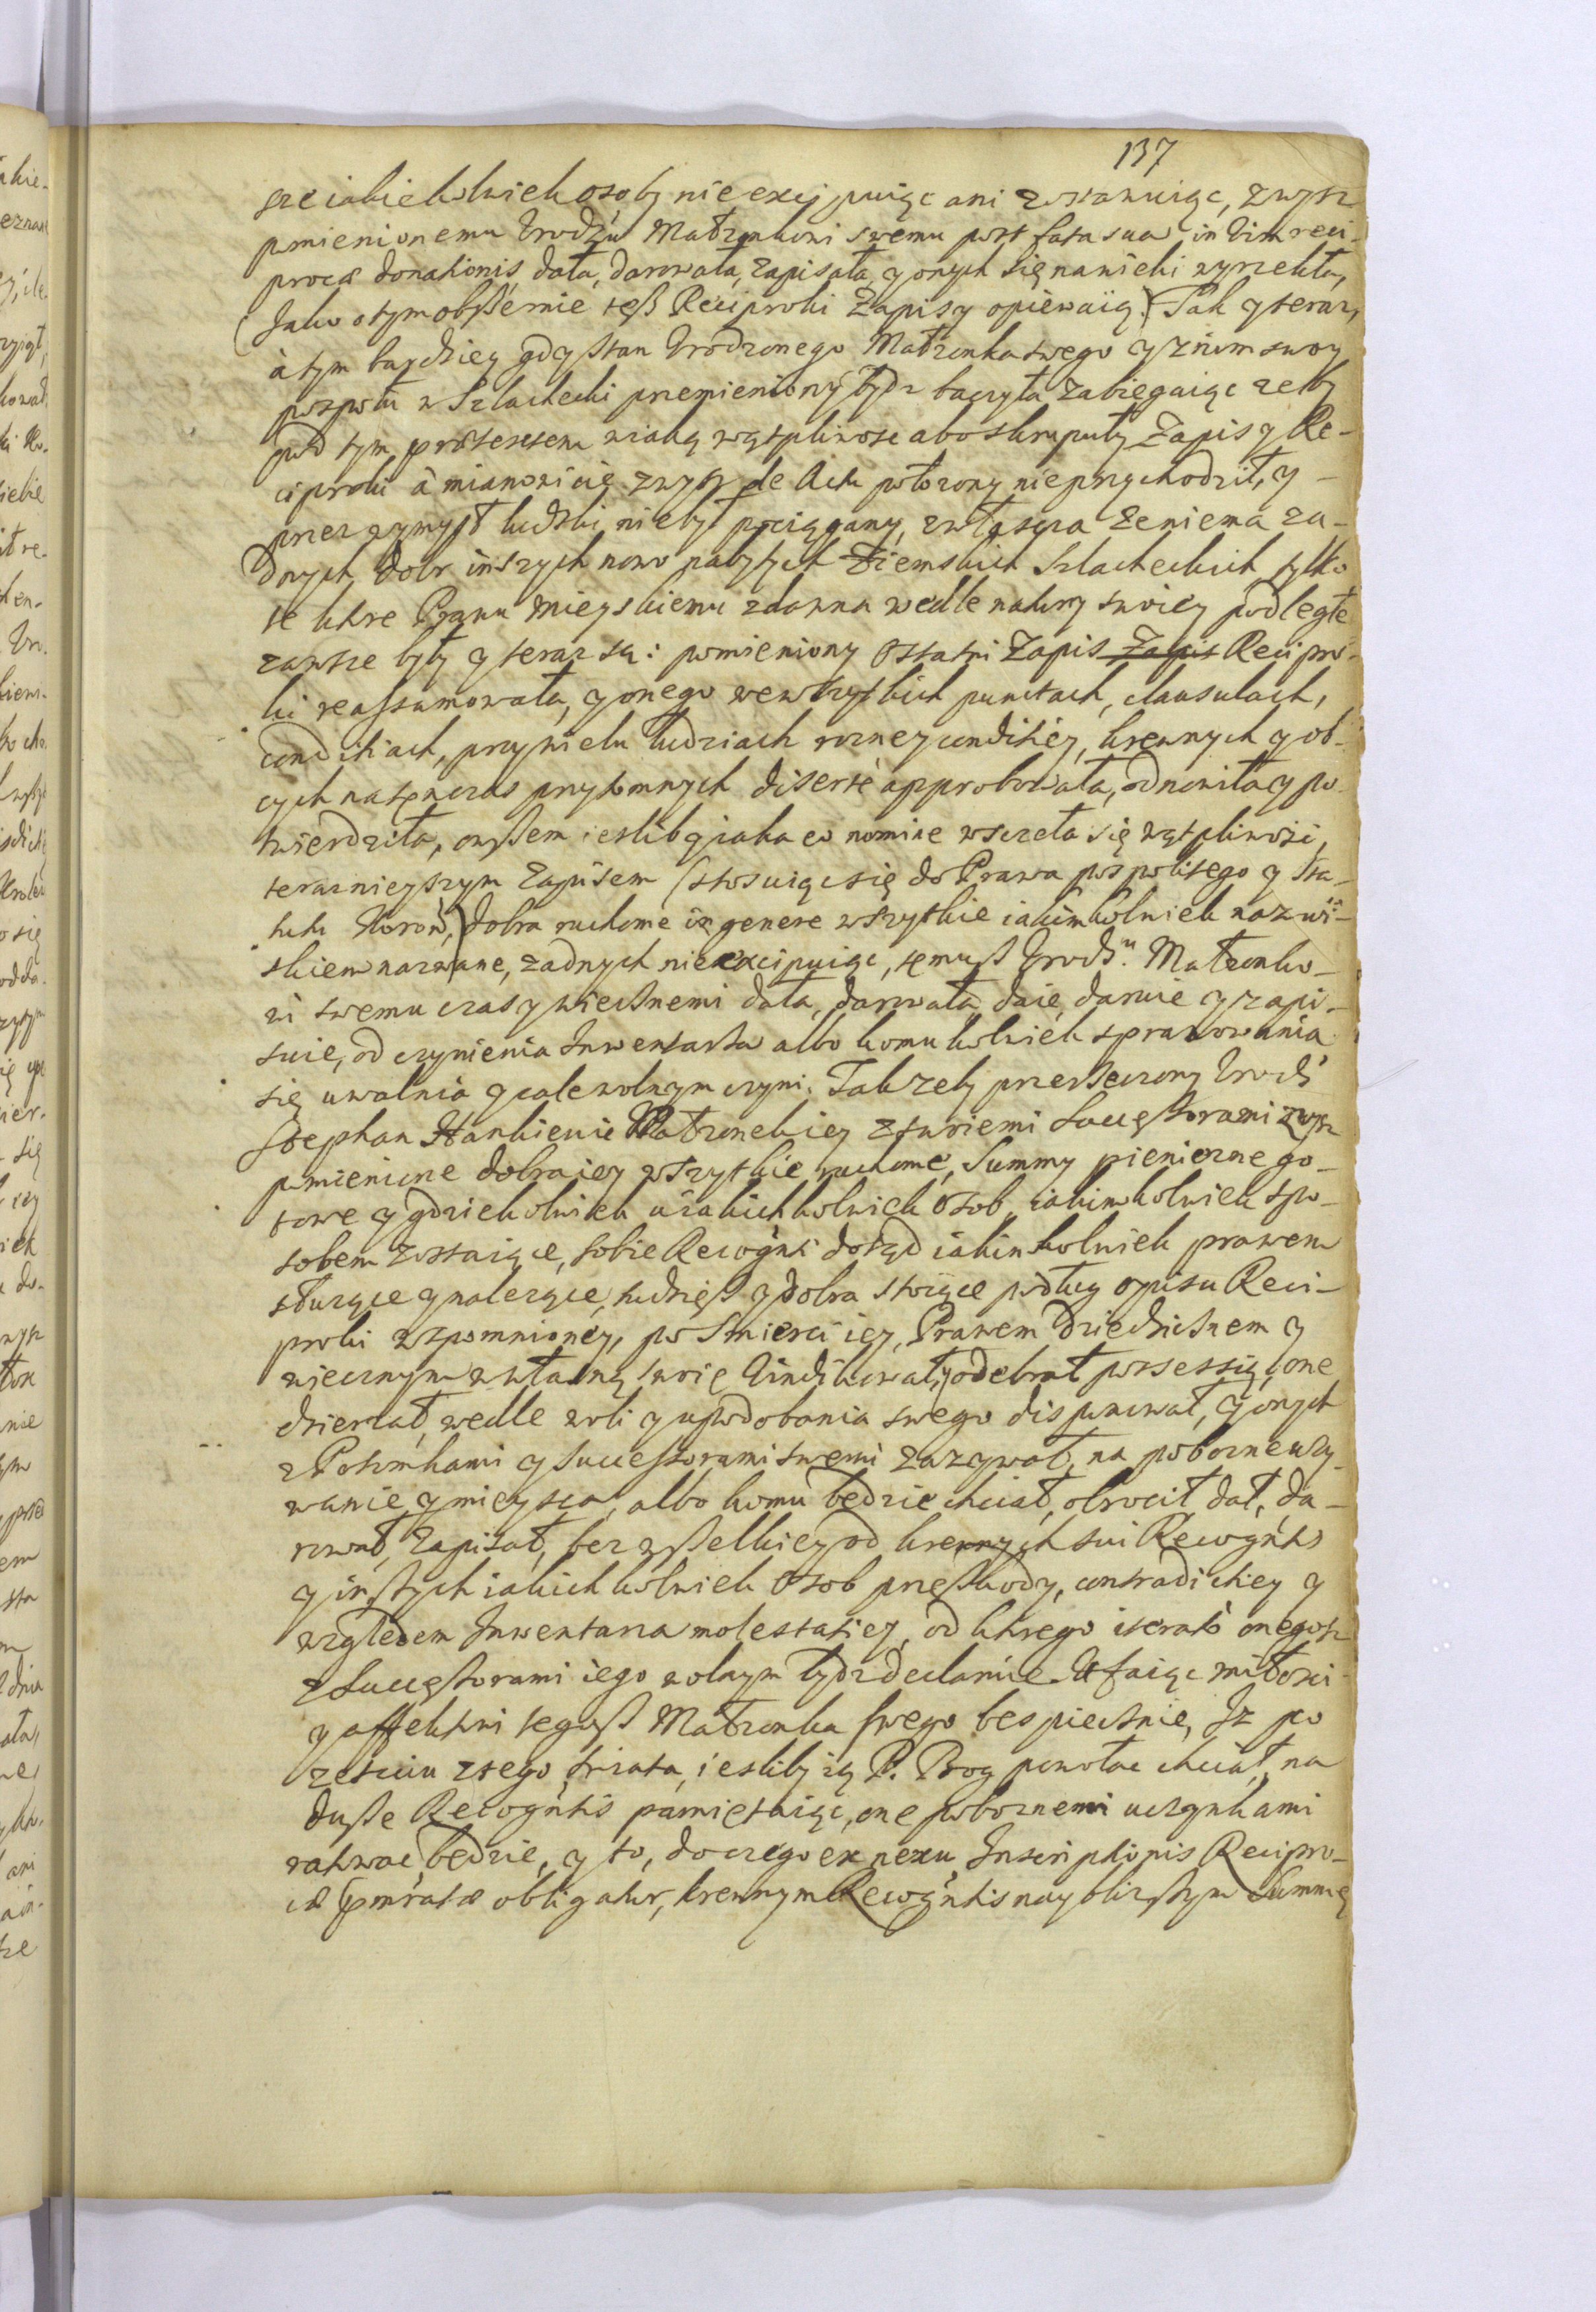 137
sze iakiekolwiek osoby nie excypuiąc ani zostawuiąc, zwysz
pmienionemu Urodz̃u Małzonkowi swemu post fata sua in vim reci-
procæ donationis, dała, darowała, zapisała, y onych się nawieki wyrzekła,
(Jako o tym obszernie tesz Reciproki Zapisy opiewaią.) Tak y teraz,
à tym bardziey gdy stan Urodzonego Małzonka swego y z nim swoy
pospołu w Szlachecki przemieniony bydz baczyła zabiegaiąc zeby
pod tym praetextem wiaką wątpliwosc abo skrupuły Zapis y Re-
ciproki à mianowicie zwysz de Actu połozony nie przychodził, y
przez wymysł ludzki nie był pociągany, zwłaszcza ze niema za-
dnych dobr inszych nowo nabytych Ziemskich Szlacheckich tylko
te ktore Prawu Mieyskiemu zdawna wedle natury swoiey podległe
zawsze były y teraz są: pomieniony Ostatni Zapis Zapis Recipro-
ki reassumowała, y onego wewszytkich punctach, clausulach,
conditiach, przy wielu ludziach rozney conditiey, krewnych y ob-
cych natenczas przytomnych disertè approbowała, odnowiła y po-
twierdziła, owszem iesliby iaka eo nomine wszczeła się wątpliwość,
teraznieyszym Zapisem (stosuiąc się do Prawa pospolitego y Sta-
tutu Koron̄,) dobra ruchome in genere wszytkie iakimkolwiek nazwi-
skiem nazwane, zadnych nie excipuiąc, temusz Urodz.u Małzonko-
wi swemu czasy wiecznemi dała, darowała, daie, daruie y zapi-
suie, od czynienia Inwentarza albo komukolwiek sprawowania
się uwalnia y cale wolnym czyni. Tak zeby przerzeczony Urodz̃
Stephan Hankienic Małzonek iey z swoiemi Successorami zwysz
pmienione dobra iey wszytkie ruchome, Summy pieniezne go-
towe y gdziekolwiek u iakichkolwiek Osob, iakimkolwiek spo-
sobem zostaiące, sobie Recogñti dotąd iakimkolwiek prawem
słuzące y nalezące, tudziesz y dobra stoiące podług opisu Reci-
proki wzpomnioney, po Smierci iey, Prawem dziedzicznem y
wiecznym w własną swoię vindikował, y odebrał possessią, one
dzierzał, wedle woli y upodobania swego disponował, y onych
z Potomkami y Successorami swemi zazywał, na pobozne uzy-
wanie y mieysca, albo komu będzie chciał, obrocił, dał, da-
rował, Zapisał, bez wszelkiey od krewnych sui Recogñtis
y inszych iakichkolwiek Osob przeszkody, contradictiey y
względem Inwentarza molestatiey, od ktorego iteratò onegosz
z Successorami iego wolnym bydz declaruie. Ufaiąc miłosci
y affektowi tegosz Małzonka swego bespiecznie, Iz po
zesciu z tego swiata, iesliby ią P. Bog powołac chciał, na
dusze Recogñtis pamiętaiąc, one poboznemi uczynkami
ratowac będzie, y to, do czego ex nexu Inscriptionis Recipro-
cæ pmratæ obligatur, krewnym Recogñtis nayblizszym Summę